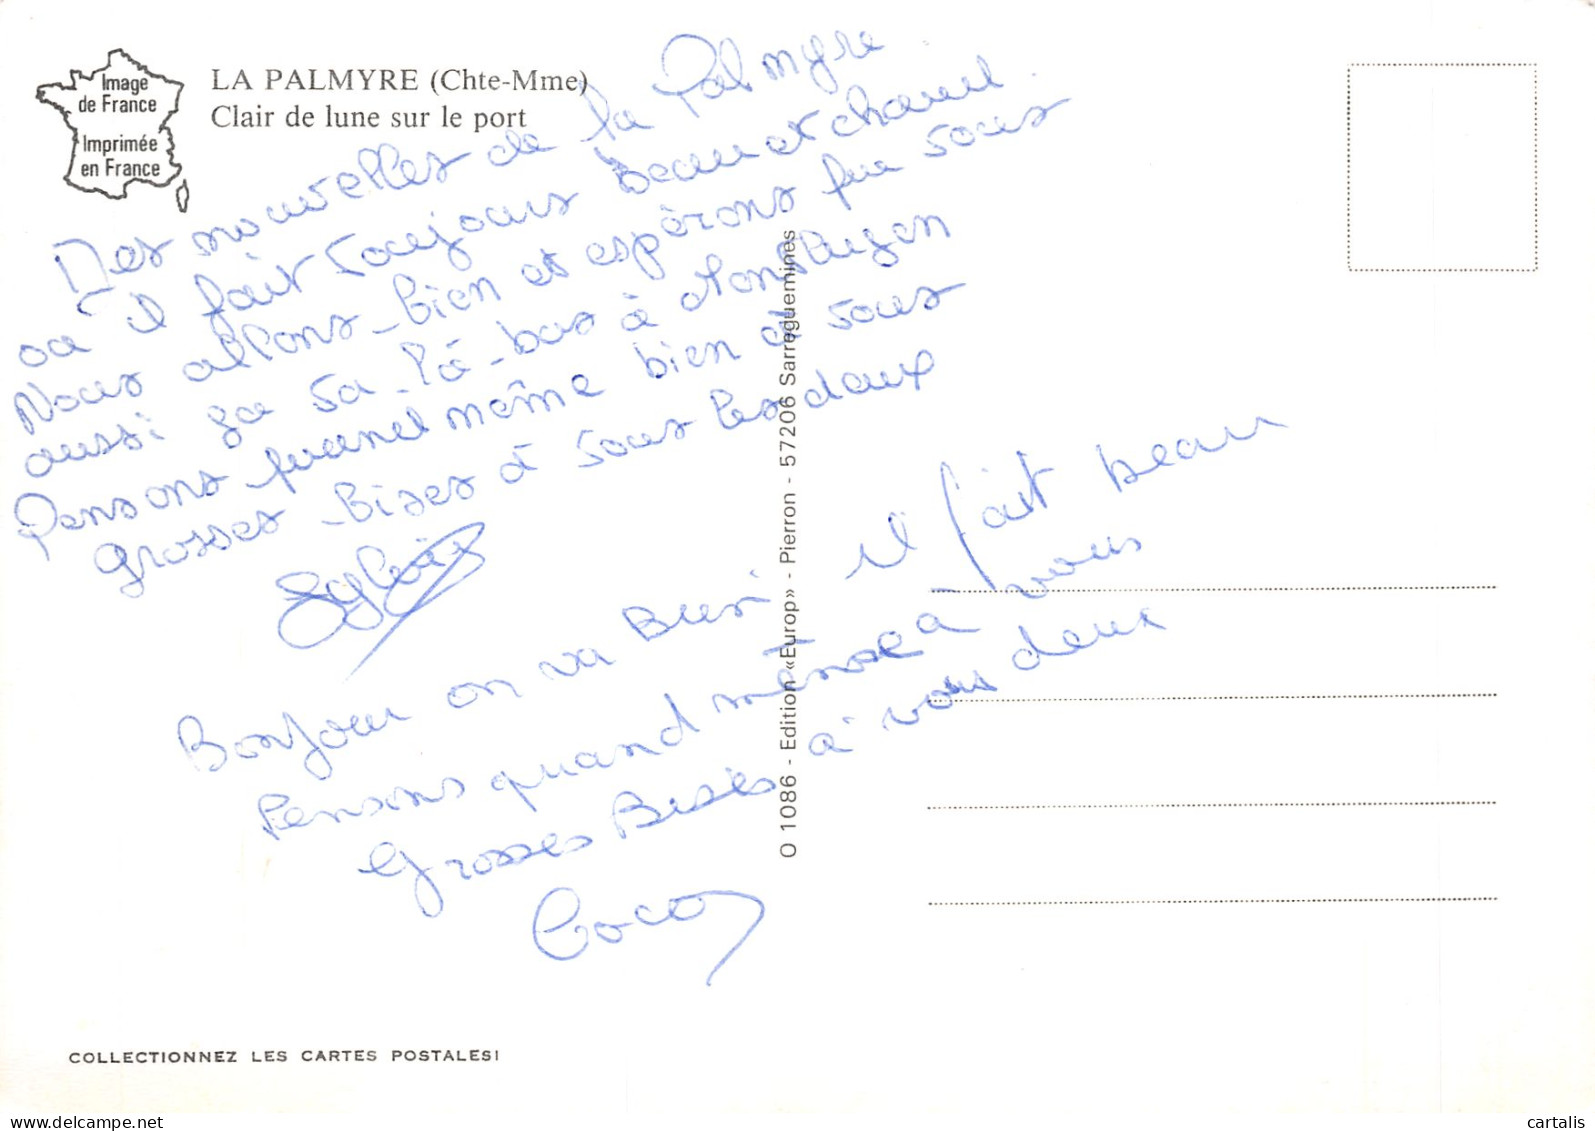 Image
de France
Imprimée
en France
LA PALMYRE (Chte-Mme)
Clair de lune sur le port
Des nouvelles de la Palmyre
ou il fait toujours beau et chaud
Nous allons bien et espérons que vous
aussi ça va là-bas à Montluçon
Pensons quand même bien à vous
grosses bises à vous les deux
Sylvie
Bonjour on va Bien il fait beau
Pensons quand même a vous
Grosses Bises à vous deux
Coco
O 1086 - Edition «Europ» - Pierron - 57206 Sarreguemines
COLLECTIONNEZ LES CARTES POSTALES!
delcampe.net
cartalis